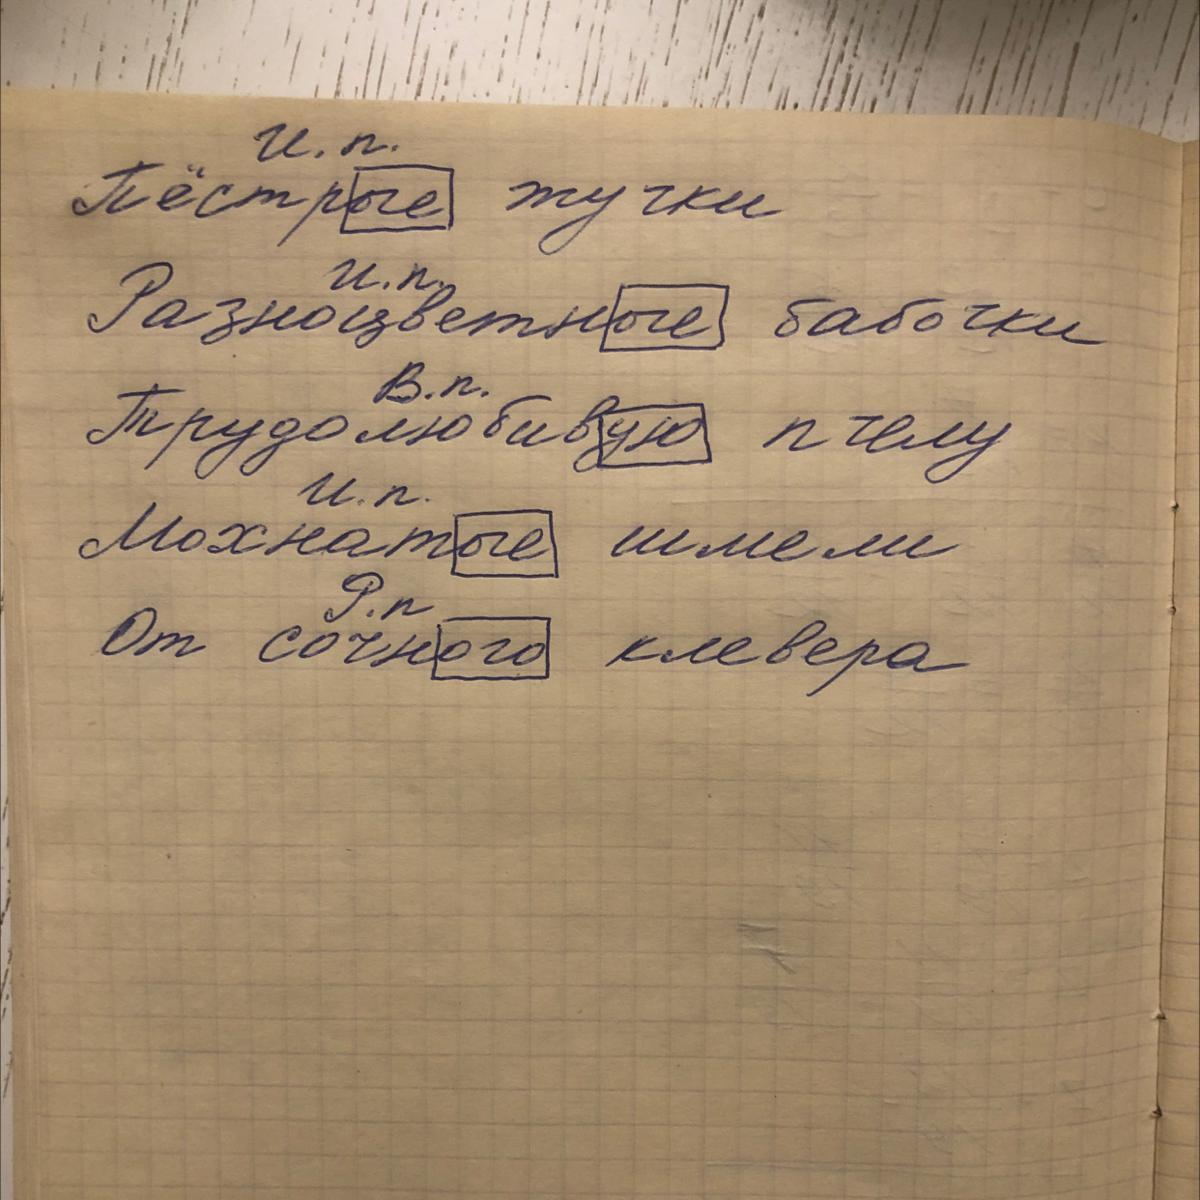 И. п.
Пёстрые жучки
И.п.
Разноцветные бабочки
В.п.
Трудолюбивую пчелу
И.п.
Мохнатые шмели
Р.п
От сочного клевера